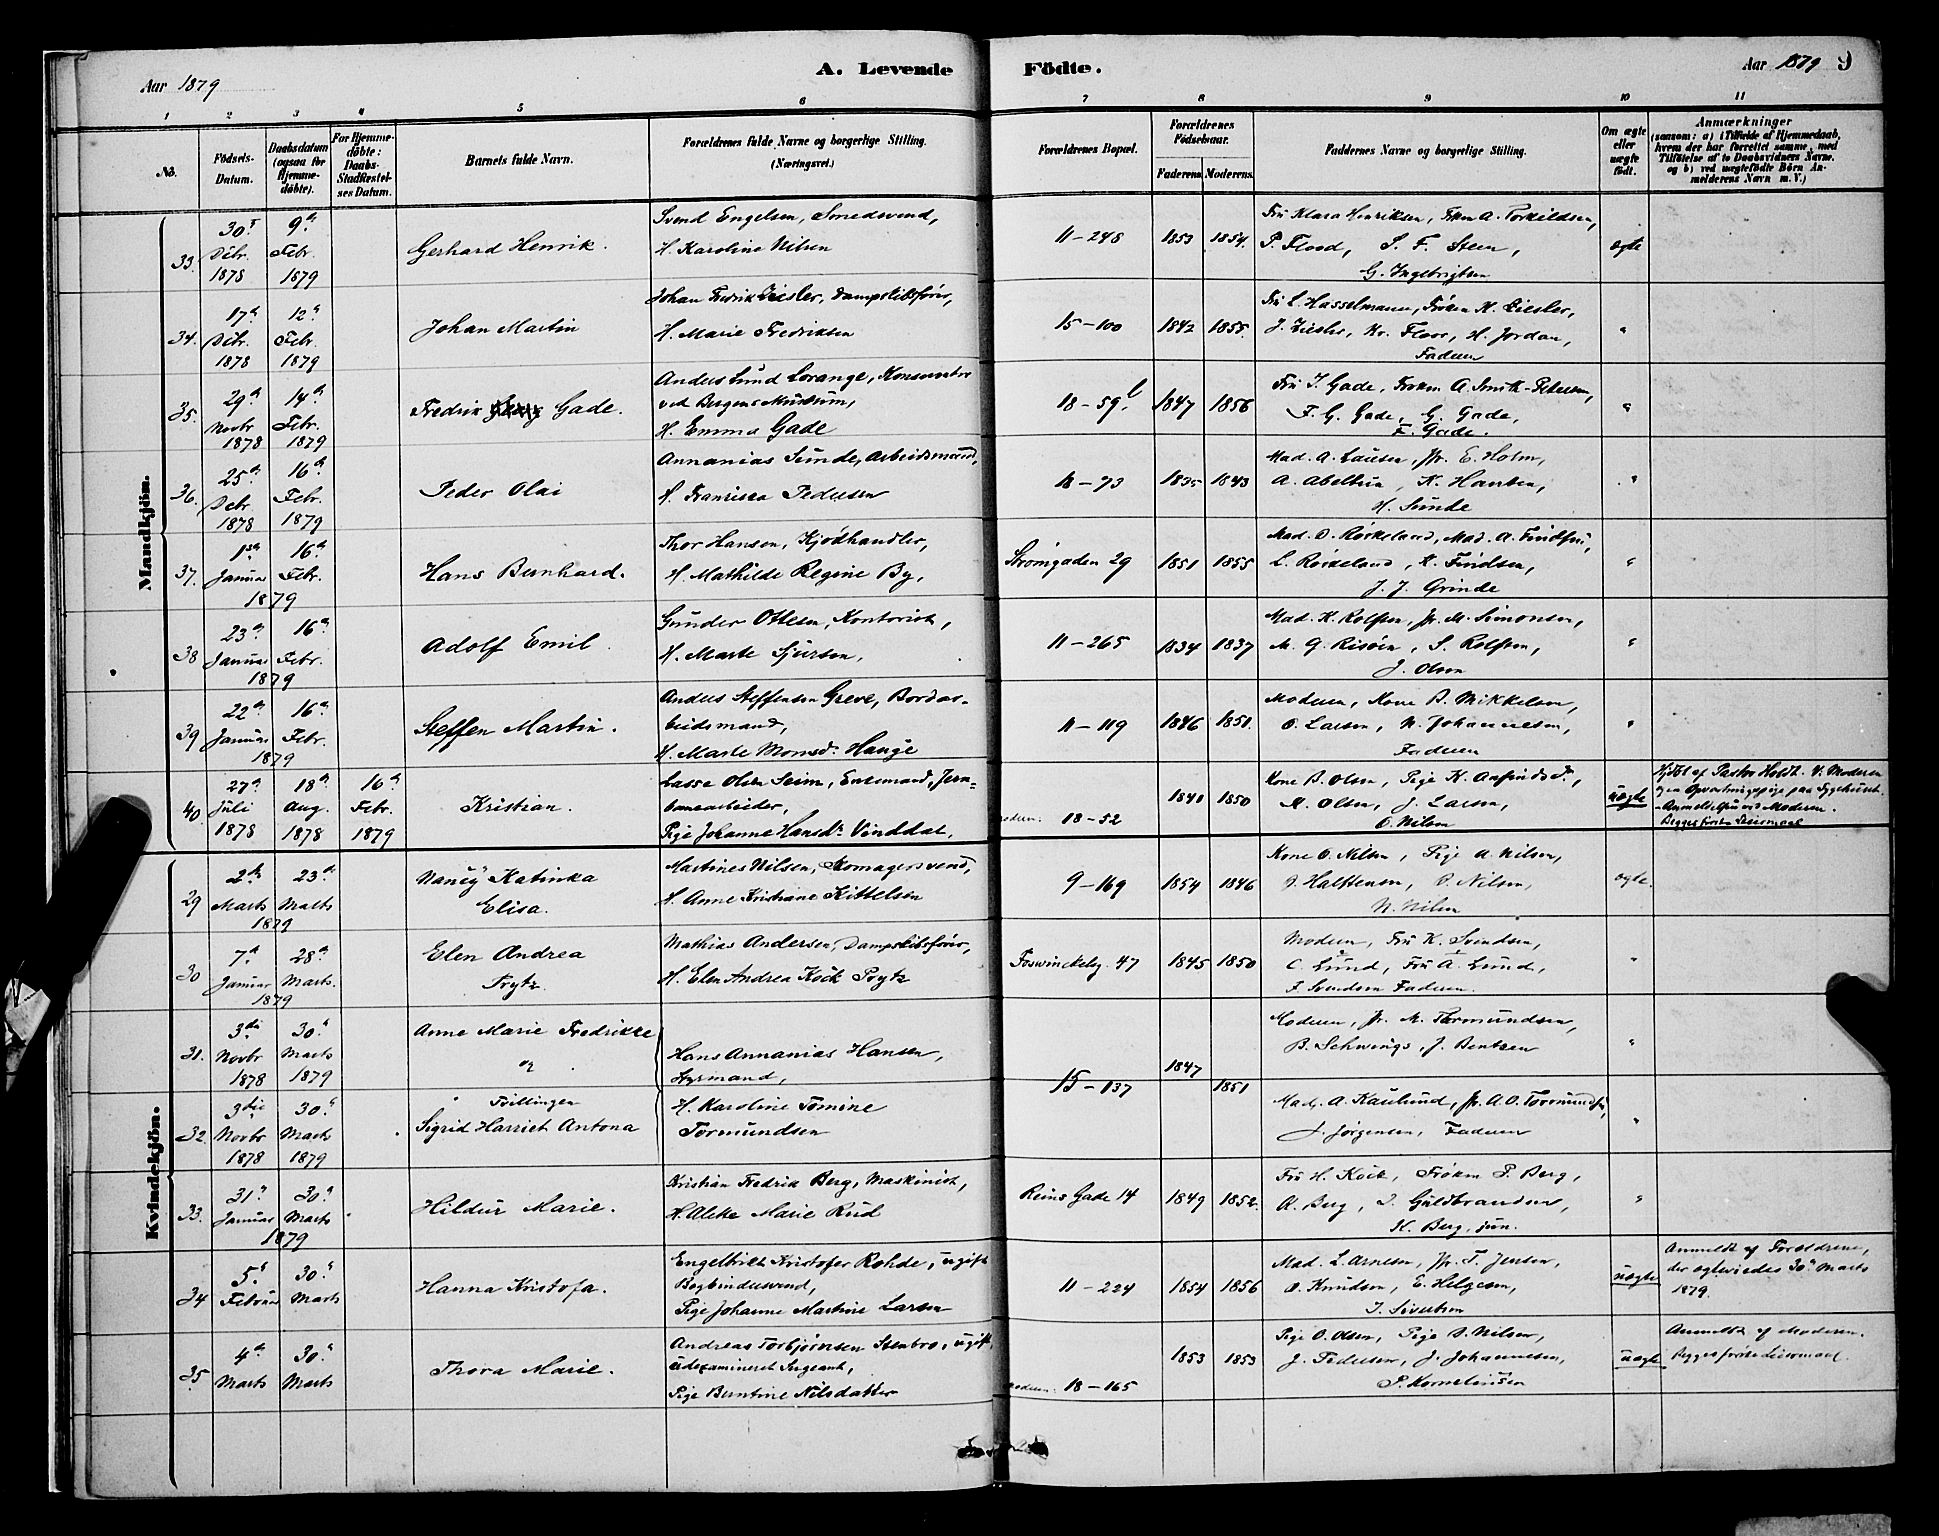 Aar 1879
A. Levende Födte.
Aar 1879 9
1 2 3 4 5 6 7 8 9 10 11
No.
Födsels-Datum.
Daabsdatum (ogsaa for Hjemme-döbte).
For Hjemme-döbte: Daabs-Stadfæstel-ses Datum.
Barnets fulde Navn.
Forældrenes fulde Navne og borgerlige Stilling. (Næringsvei.)
Forældrenes Bopæl.
Forældrenes Födselsaar.
Faderens. Moderens.
Faddernes Navne og borgerlige Stilling.
Om ægte eller uægte födt.
Anmærkninger
(saasom: a) i Tilfælde af Hjemmedaab, hvem der har forrettet samme, med Tilföielse af to Daabsvidners Navne. og b) ved uægtefödte Börn An-melderens Navn m. V.)
Mandkjön.
33. 30 Debr. 1878
9de Febr. 1879
Gerhard Henrik.
Svend Engelsen, Smedsvend,
H. Karoline Nilsen
11-248 1853 1854.
Fru Klara Henriksen, Frken A. Torkildsen,
P. Flood, S. F. Steen,
G. Ingebrigtsen
ægte
34. 17de Debr. 1878
12te Febr. 1879
Johan Martin
Johan Fredrik Ziesler, Dampskibsfører,
H. Marie Fredriksen
15-100 1842 1855.
Fru L. Hasselmann, Frøken K. Ziesler,
J. Ziesler, Kr. Floor, H. Jordan,
Faderen
"
35. 29de Novbr 1878
14de Febr. 1879
Fredrik Gade.
Anders Lund Lorange, Konservator
ved Bergens Museum,
H. Emma Gade
18-59 1847 1856
Fru I. Gade, Frøken A. Smith-Petersen,
F. G. Gade, G. Gade,
F. Gade.
"
36. 25de Debr 1878
16de Febr. 1879
Peder Olai
Annanias Sunde, Arbeidsmand,
H. Fransiska Pedersen
18-73 1835 1843
Mad. A. Larsen, Jfr. E. Holm,
A. Abelsen, K. Hansen,
H. Sunde
"
37. 1ste Januar
16de Febr.
1879
Hans Bernhard.
Thor Hansen, Kjødhandler,
H. Mathilde Regine By,
Strømgaden 29 1851 1855
Mad. O. Røikeland, Mad. A. Findsen,
L. Røikeland, K. Findsen,
J. J. Grinde
"
38 23de Januar
16de Febr.
1879
Adolf Emil.
Gunder Ottesen, Kontorist,
H. Marte Sjursen,
11-265 1834 1837
Mad. K. Rolfsen, Jfr. M. Simonsen,
M. G. Risøen, S. Rolfsen,
J. Olsen
"
39 22de Januar
16de Febr.
1879
Steffen Martin.
Anders Steffensen Greve, Bordar-
beidsmand,
H. Marte Monsdr Hauge
11-119 1846 1851.
Moderen, Kone B. Mikkelsen,
O. Larsen, N. Johannesen,
Faderen
"
40 27de Juli 1878
18de Aug. 1878
16de Febr. 1879
Kristian.
Lasse Olsen Seim, Enkemand, Jern-
banearbeider,
Pige Johanne Hansdr Vinddal,
18-52 1840 1850
Kone B. Olsen, Pige K. Arfindsdr,
K. Olsen, J. Larsen,
O. Nilsen
uægte
Hjdbt af Pastor Holdt.
Begges første Leiermaal
Kvindekjön.
29 2den Marts
23de Marts
1879
Nancy Katinka
Elisa.
Martines Nilsen, Skomagersvend,
H. Anne Kristiane Kittelsen
9-169 1854 1846
Kone O. Nilsen, Pige A. Nilsen,
J. Halstensen, P. Nilsen,
N. Nilsen
ægte.
30 7de Januar
28de Marts.
1879
Elen Andrea
Prytz
Mathias Andersen, Dampskibsfører,
H. Elen Andrea Kock Prytz
Foswinckelg. 47 1845 1850
Moderen, Fru K. Svendsen,
C. Lund, Fru A. Lund,
F. Svendsen Faderen.
"
31. 3die Novbr 1878
30. Marts 1879
Anne Marie Fredrikke
og
Hans Annanias Hansen,
Styrmand,
15-137 1847 1851
Moderen, Jfr. M. Tormundsen,
B. Schwings, J. Bentzen
"
32. 3die Novbr 1878
30. Marts 1879
Tvillinger
Sigrid Harriet Antona
H. Karoline Tomine
Tormundsen
Mad. A. Kaulund, Jfr. A. O. Tormundsen,
J. Jørgensen, Faderen
"
33. 31. Januar
30. Marts
1879
Hildur Marie.
Kristian Fredrik Berg, Maskinist,
H. Alette Marie Rud
Reins Gade 14 1849 1852.
Fru H. Kock, Frøken P. Berg,
A. Berg, I. Guldbrandsen,
H. Berg, jun.
"
34 5. Februar
30. Marts
Hanna Kristofa.
Engelbrikt Kristofer Rohde, ugift
Bogbindersvend,
Pige Johanne Martine Larsen
11-224 1854 1856
Mad. L. Arnesen, Jfr. T. Jensen,
O. Knudsen, E. Helgesen,
I. Sivertsen
uægte
Anmeldt af Forældrene,
der ægteviedes 30. Marts
1879.
35. 4de Marts
30. Marts
Thora Marie.
Andreas Torbjørnsen Stenbro, ugift,
udexamineret Sergeant,
Pige Berntine Nilsdatter
18-165 1853 1853
Pige O. Olsen, Pige A. Nilsen,
J. Pedersen, J. Johannesen,
P. Korneliussen
uægte
Anmeldt af Moderen.
Begges første Leiermaal.